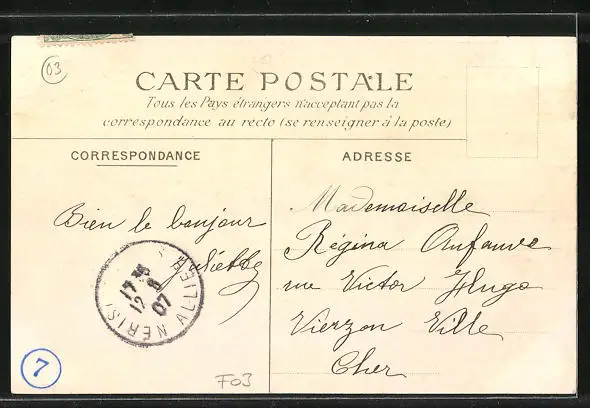 03
CARTE POSTALE
Tous les Pays étrangers n'acceptant pas la
correspondance au recto (se renseigner à la poste)
CORRESPONDANCE
ADRESSE
Bien le bonjour
Juliette
Mademoiselle
Régina Aufauve
rue Victor Hugo
Vierzon Ville
Cher
NÉRIS
ALLIER
12 8
07
7
F03